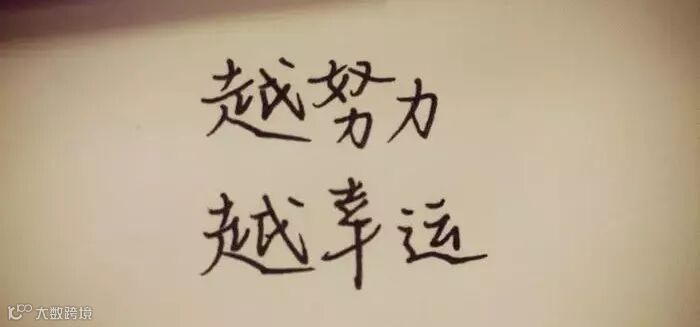 越努力
越幸运
大数跨境